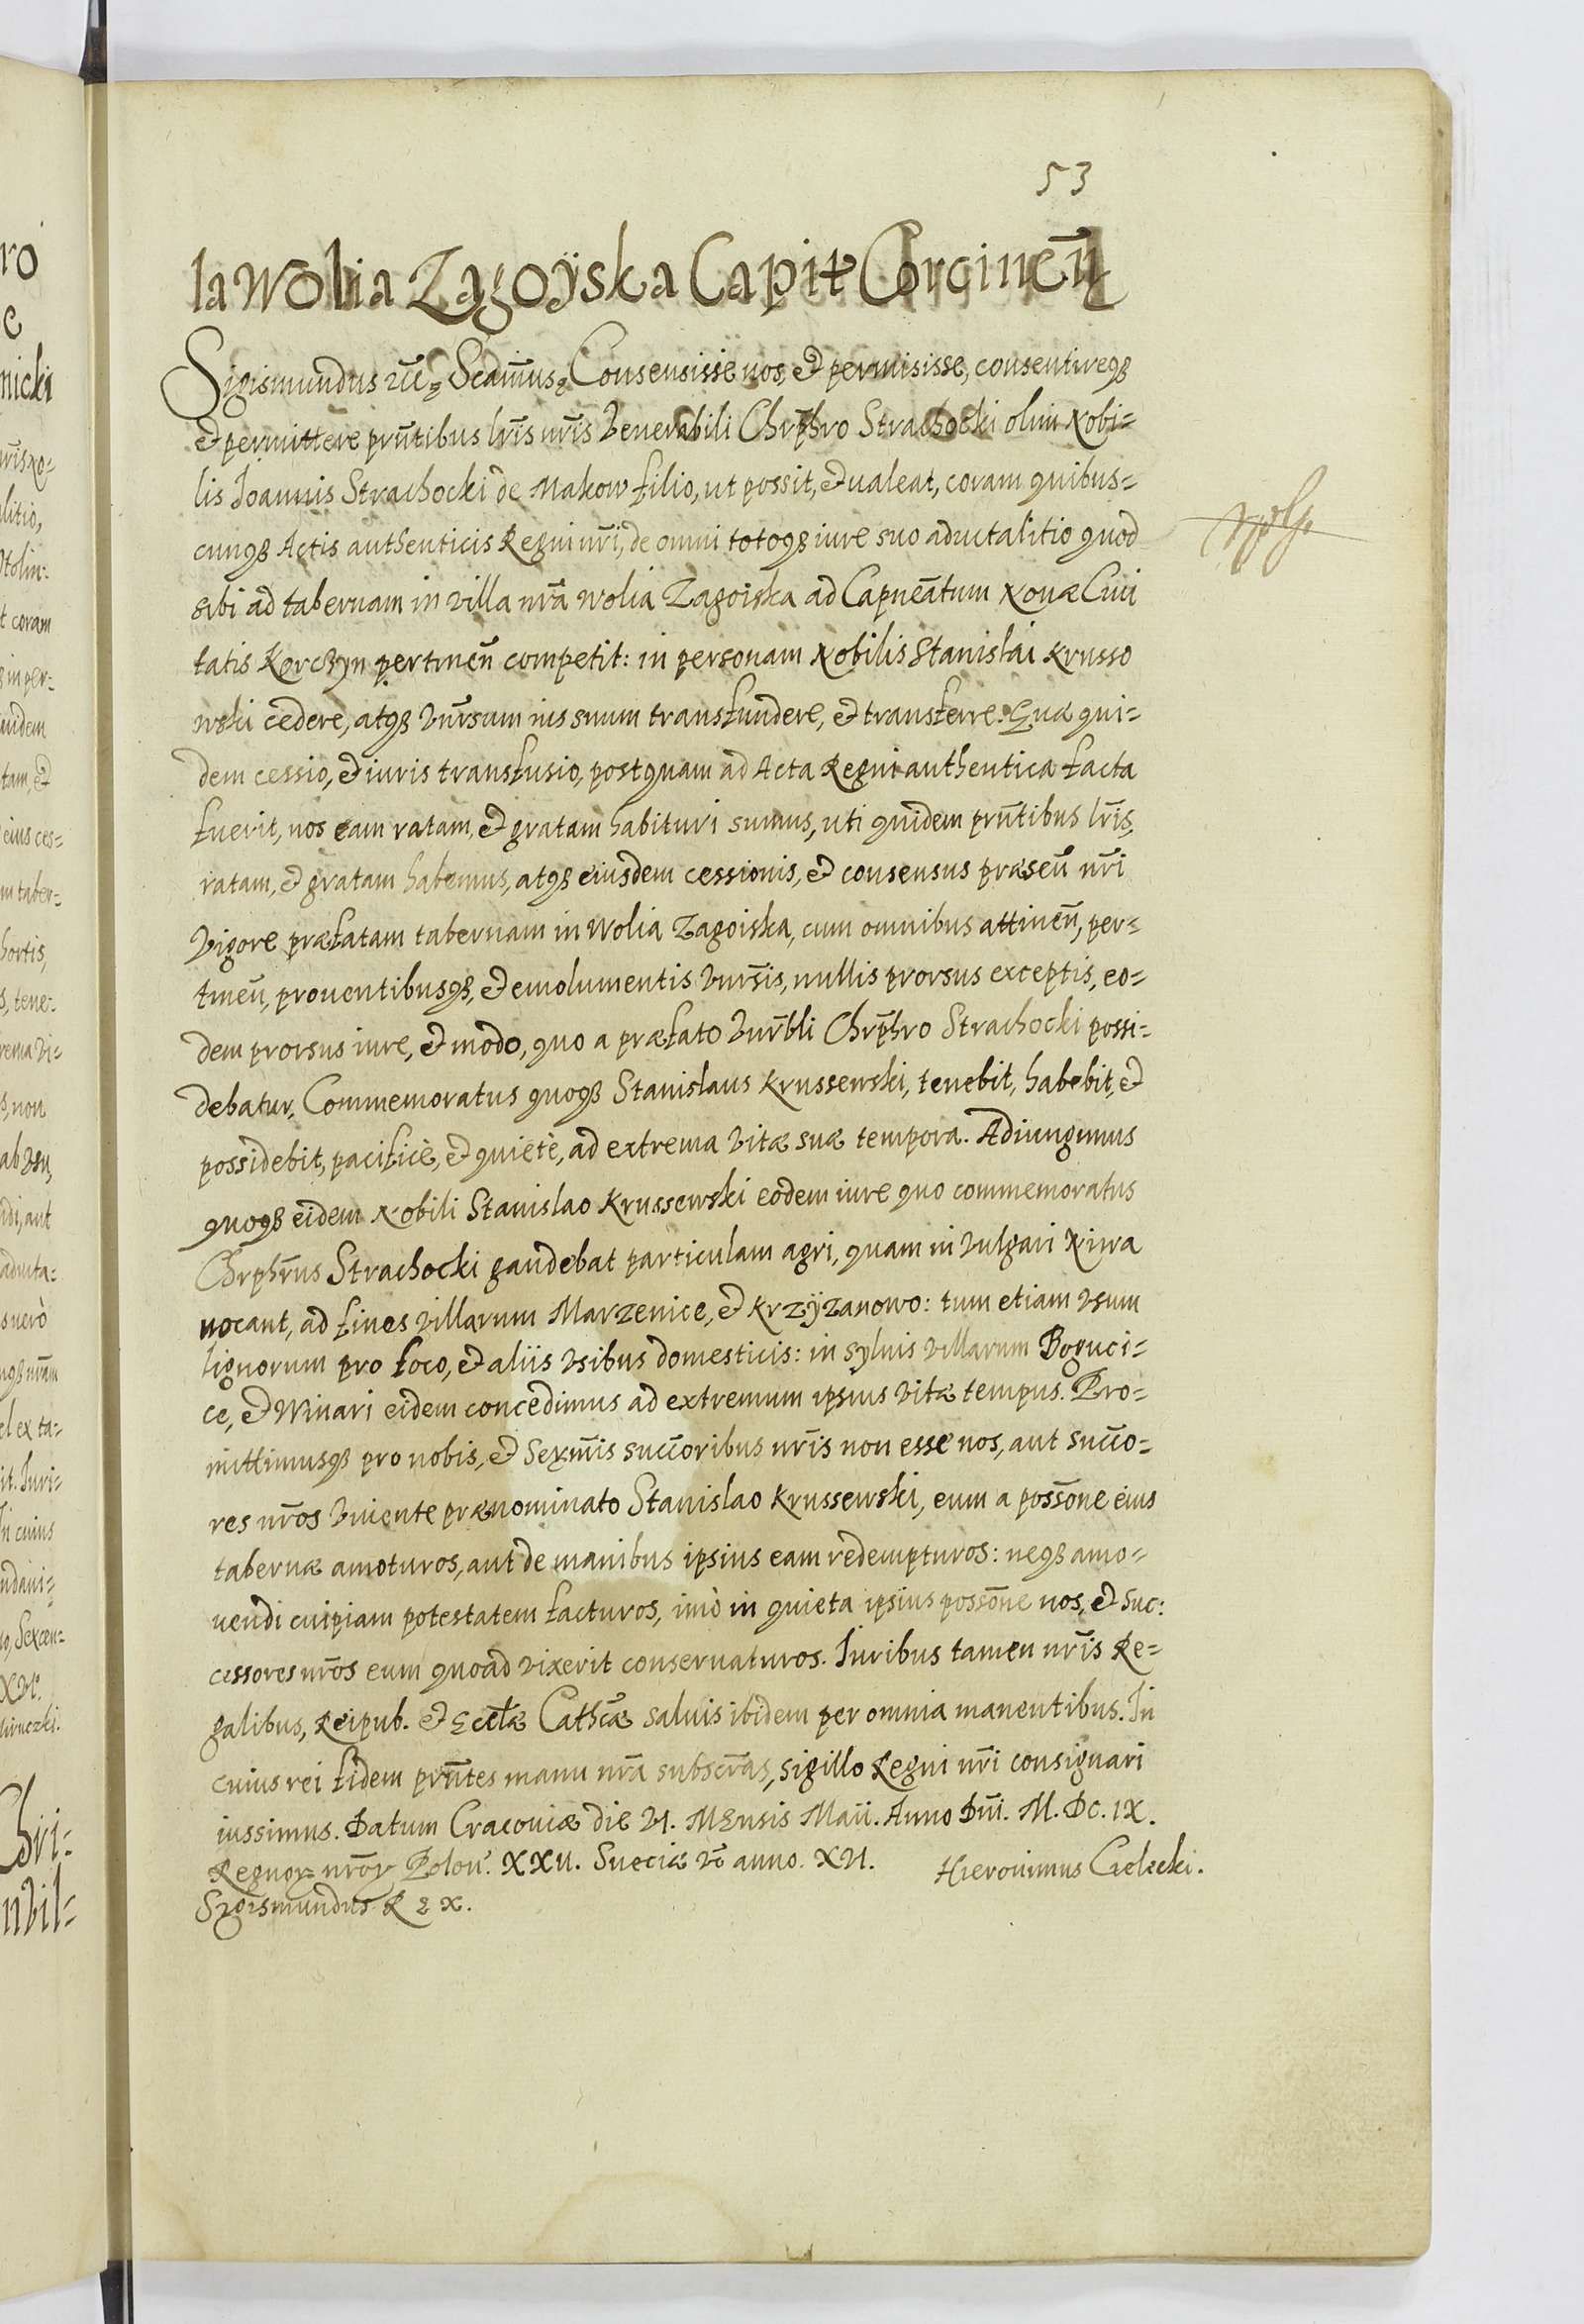 53
la Wolia Zagoÿska Capit Corcinen̄
Sigismundus etc̄ Scām̄us Consensisse nos, et permisisse, consentireq3
et permittere prn̄tibus lrīs nrīs Venerabili Chrp̄hro Strachocki olim Nobi-
lis Joannis Strachocki de Makow filio, ut possit, et ualeat, coram quibus-
cunq3 Actis authenticis Regni nrī, de omni totoq3 iure suo aduitalitio quod
sibi ad tabernam in villa nrā Wolia Zagoiska ad Capnēatum Nouæ Ciui
tatis Korczyn pertinen̄ competit: in personam Nobilis Stanislai Krusso
wski cedere, atq3 Vnr̄sum ius suum transfundere, et transferre. Quæ qui-
dem cessio, et iuris transfusio, postquam ad Acta Regni authentica facta
fuerit, nos eam ratam, et gratam habituri sumus, uti quidem prn̄tibus lrīs,
ratam, et gratam habemus, atq3 eiusdem cessionis, et consensus præsen̄ nrī
Vigore præfatam tabernam in Wolia Zagoiska, cum omnibus attinen̄, per-
tinen̄, prouentibusq3, et emolumentis Vnr̄sis, nullis prorsus exceptis, eo-
dem prorsus iure, et modo, quo a præfato Vnr̄bli Chrp̄hro Strachocki possi-
debatur, Commemoratus quoq3 Stanislaus Krussewski, tenebit, habebit, et
possidebit, pacificè, et quietè, ad extrema vitæ suæ tempora. Adiungimus
quoq3 eidem Nobili Stanislao Krussewski eodem iure quo commemoratus
Chrphr̄us Strachocki gaudebat particulam agri, quam in vulgari Niwa
uocant, ad fines villarum Marzenice, et Krzÿzanowo: tum etiam vsum
lignorum pro foco, et aliis vsibus domesticis: in syluis villarum Boguci-
ce, et Winari eidem concedimus ad extremum ipsius vitæ tempus. Pro-
mittimusq3 pro nobis, et Serm̄is succ̄oribus nrīs non esse nos, aut succ̄o-
res nrōs viuente prænominato Stanislao Krussewski, eum a possōne eius
tabernæ amoturos, aut de manibus ipsius eam redempturos: neq3 amo-
uendi cuipiam potestatem facturos, imò in quieta ipsius possōne nos, et suc:
cessores nrōs eum quoad vixerit conseruaturos. Iuribus tamen nrīs Re-
galibus, Reipub. et Eccłæ Cathc̄æ saluis ibidem per omnia manentibus. In
cuius rei fidem prn̄tes manu nrā subscrās, sigillo Regni nrī consignari
iussimus. Datum Cracouiæ die VI. Mensis Maii. Anno Dnī. M. DC. IX.
Regnor nrōr Polon̄. XXII. Sueciæ vō anno. XVI. Hieronimus Cielecki.
Sigismundus REX.